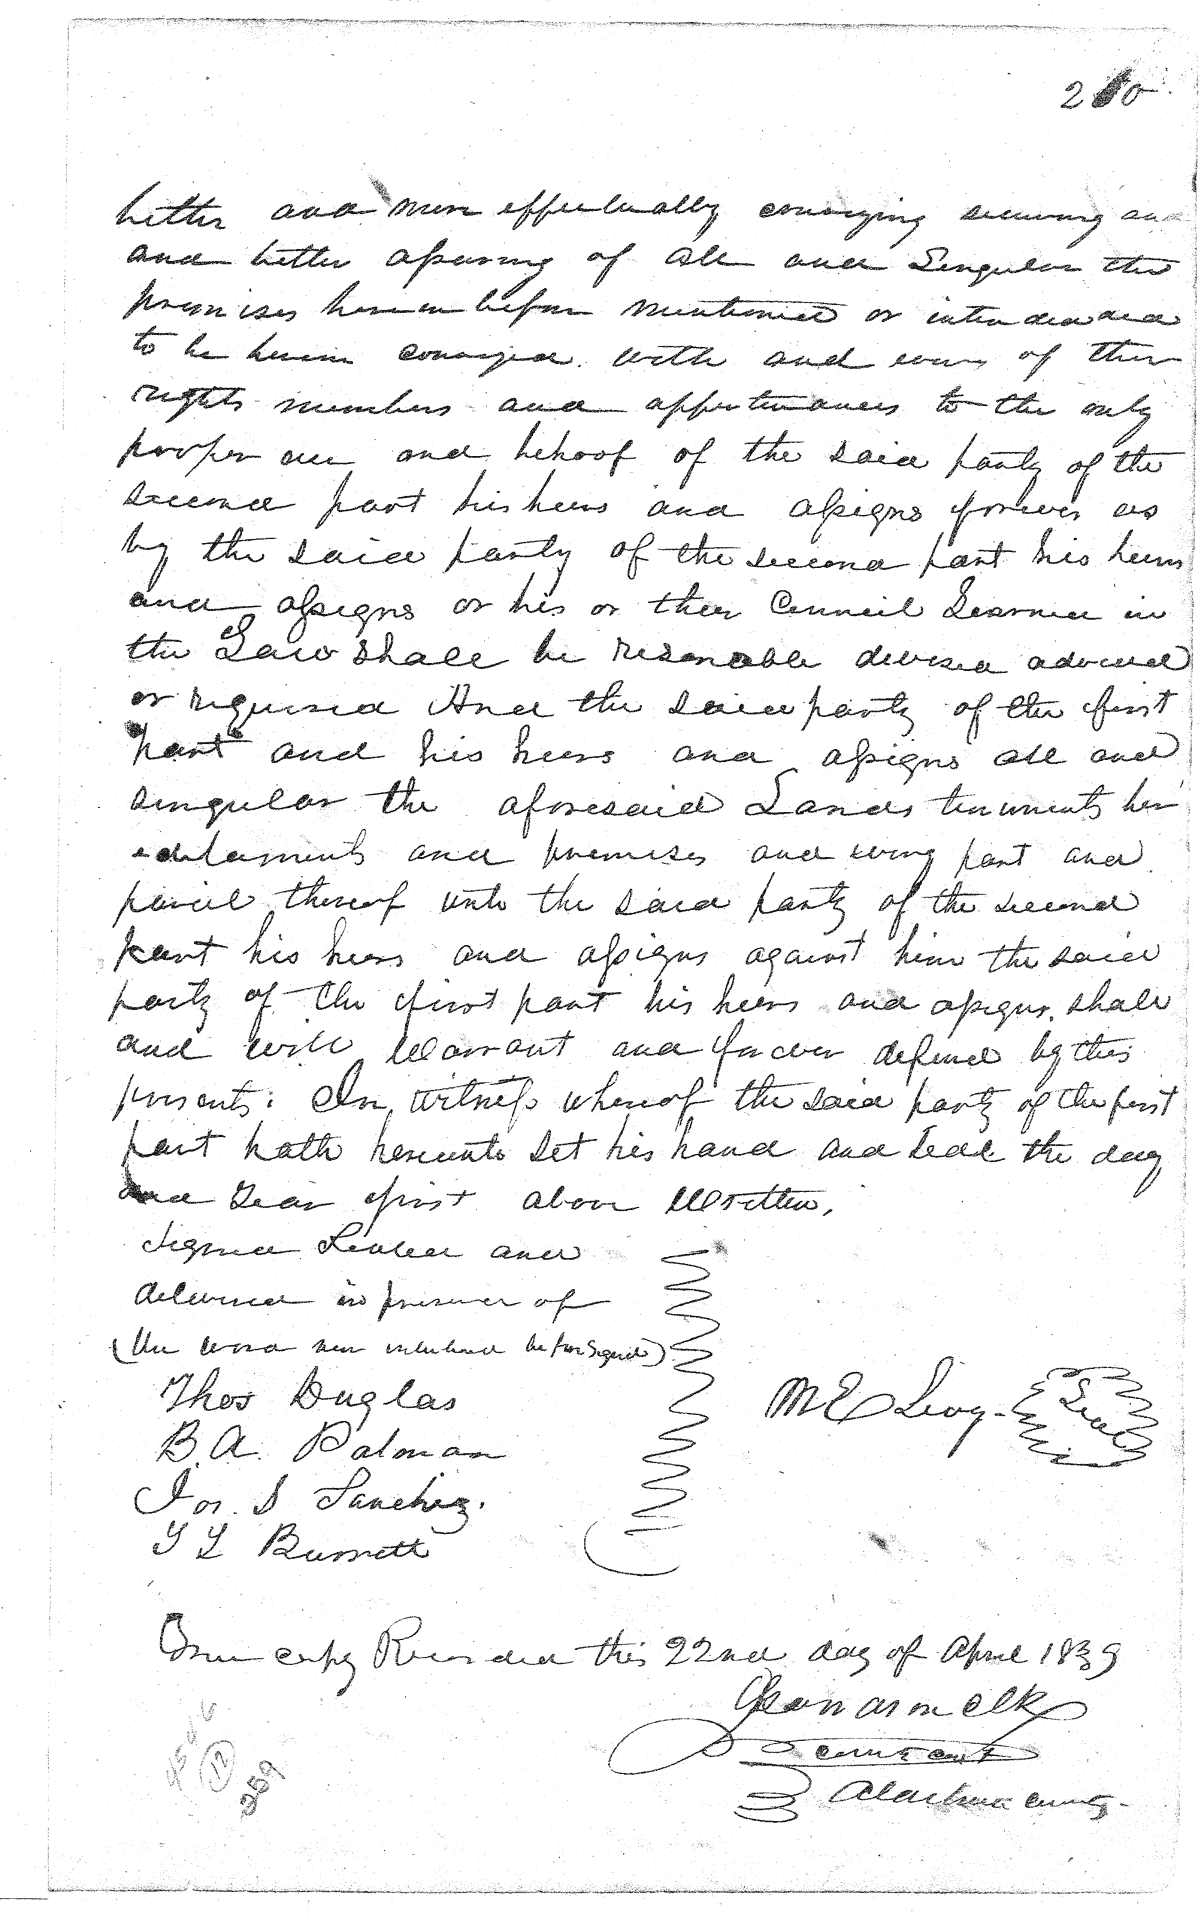 210
better and more effectually conveying securing an
and better assuring of all and Singular the
premises herein before mentioned or intended and
to be herein conveyed with and every of their
rights members and appertenances to the only
proper use and behoof of the said party of the
second part his heirs and assigns forever as
by the said party of the second part his heirs
and assigns or his or their Council Learned in
the Law shall be resonable devised advised
or required And the said party of the first
part and his heirs and assigns all and
singular the aforesaid Lands tenuments her
editaments and premises and every part and
parcel thereof unto the said party of the second
part his heirs and assigns against him the said
party of the first part his heirs and assigns shall
and will Warrant and forever defend by this
presents: In witness whereof the said party of the first
part hath hereunto set his hand and seal the day
and year first above Written,
Signed Sealed and
delivered in presence of
(the word interlined before signed)
Thos Duglas
B. A. Patman
Jos. S Sanchez.
M E Levy. Seal
True copy Recorded this 22nd day of April 1839
Clk
county court
Alachua county.
12
259